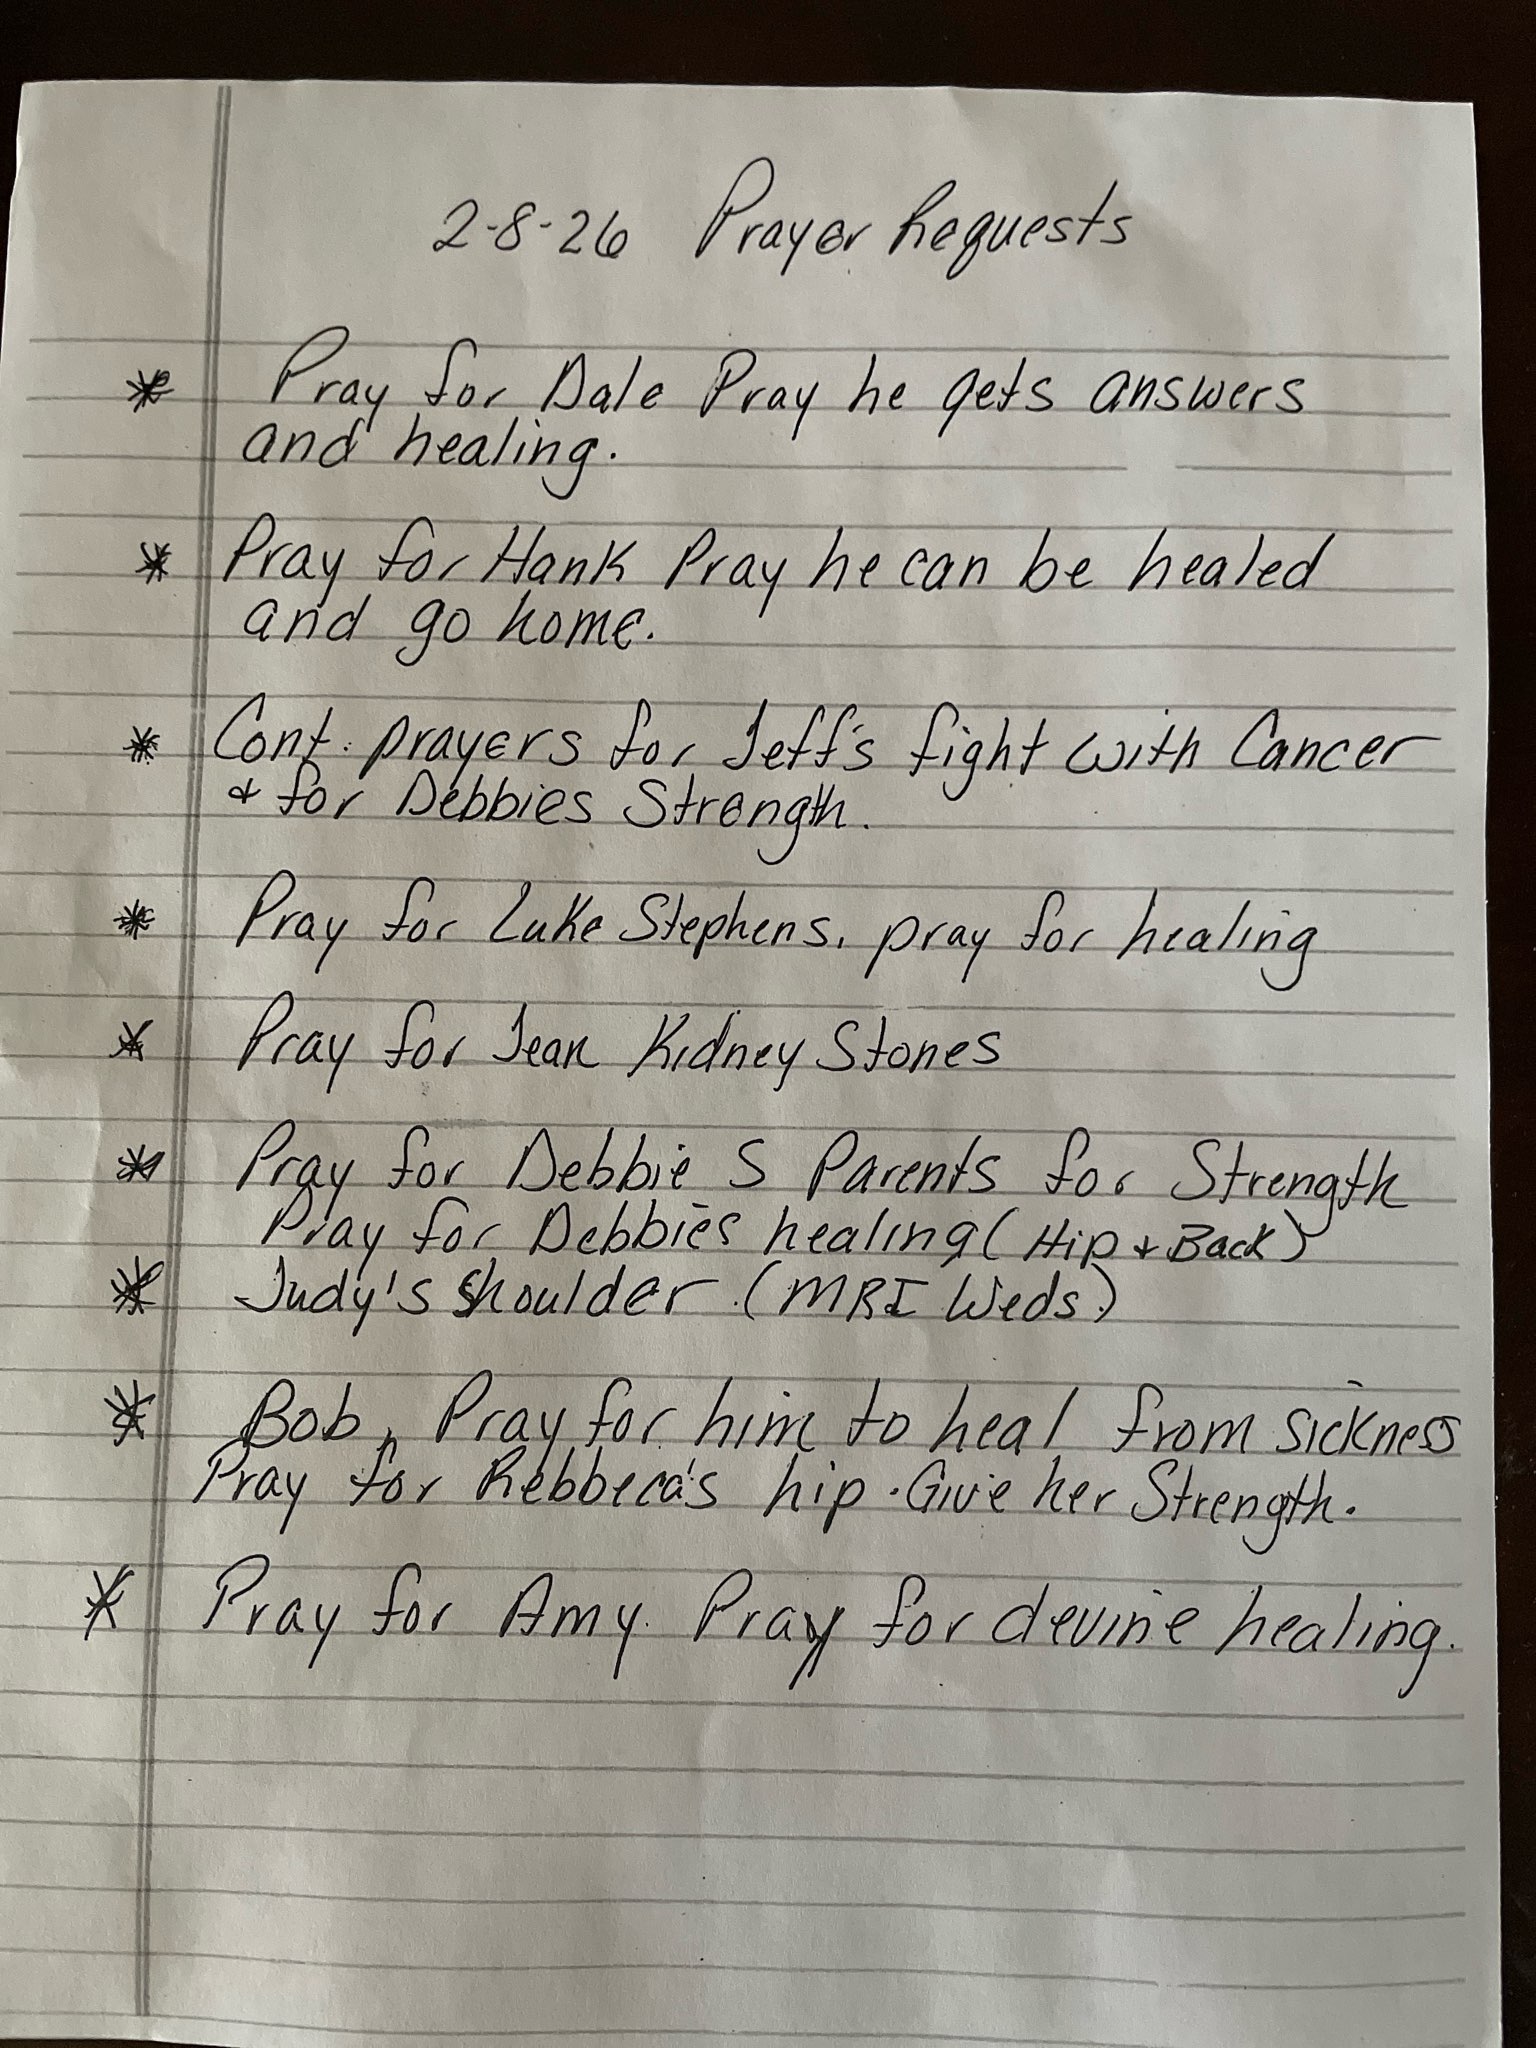 2-8-26 Prayer Requests
* Pray for Dale Pray he gets answers
and healing.
* Pray for Hank Pray he can be healed
and go home.
* Cont. prayers for Jeff's fight with Cancer
& for Debbies Strength.
* Pray for Luke Stephens. pray for healing
* Pray for Jean Kidney Stones
* Pray for Debbie S Parents for Strength
Pray for Debbies healing (Hip & Back)
* Judy's Shoulder. (MRI Weds.)
* Bob, Pray for him to heal from sickness
Pray for Rebbeca's hip. Give her Strength.
* Pray for Amy. Pray for devine healing.